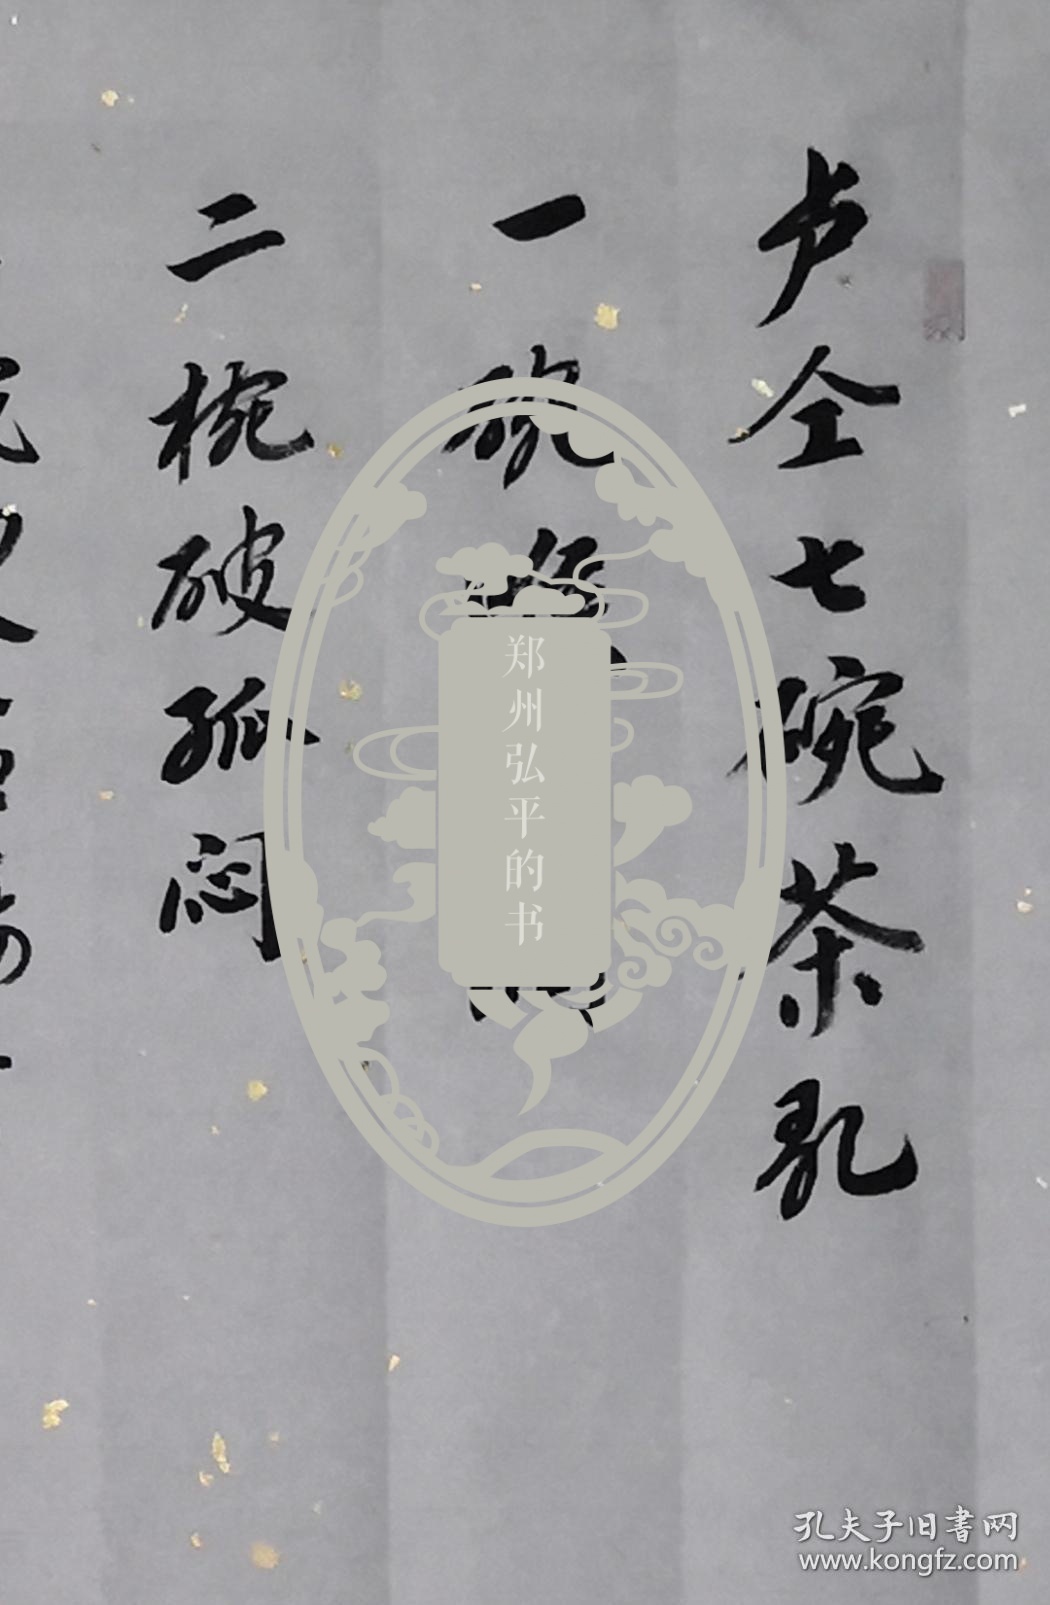 卢仝七碗茶歌
一碗喉
二椀破孤闷
郑州弘平的书
孔夫子旧書网
www.kongfz.com